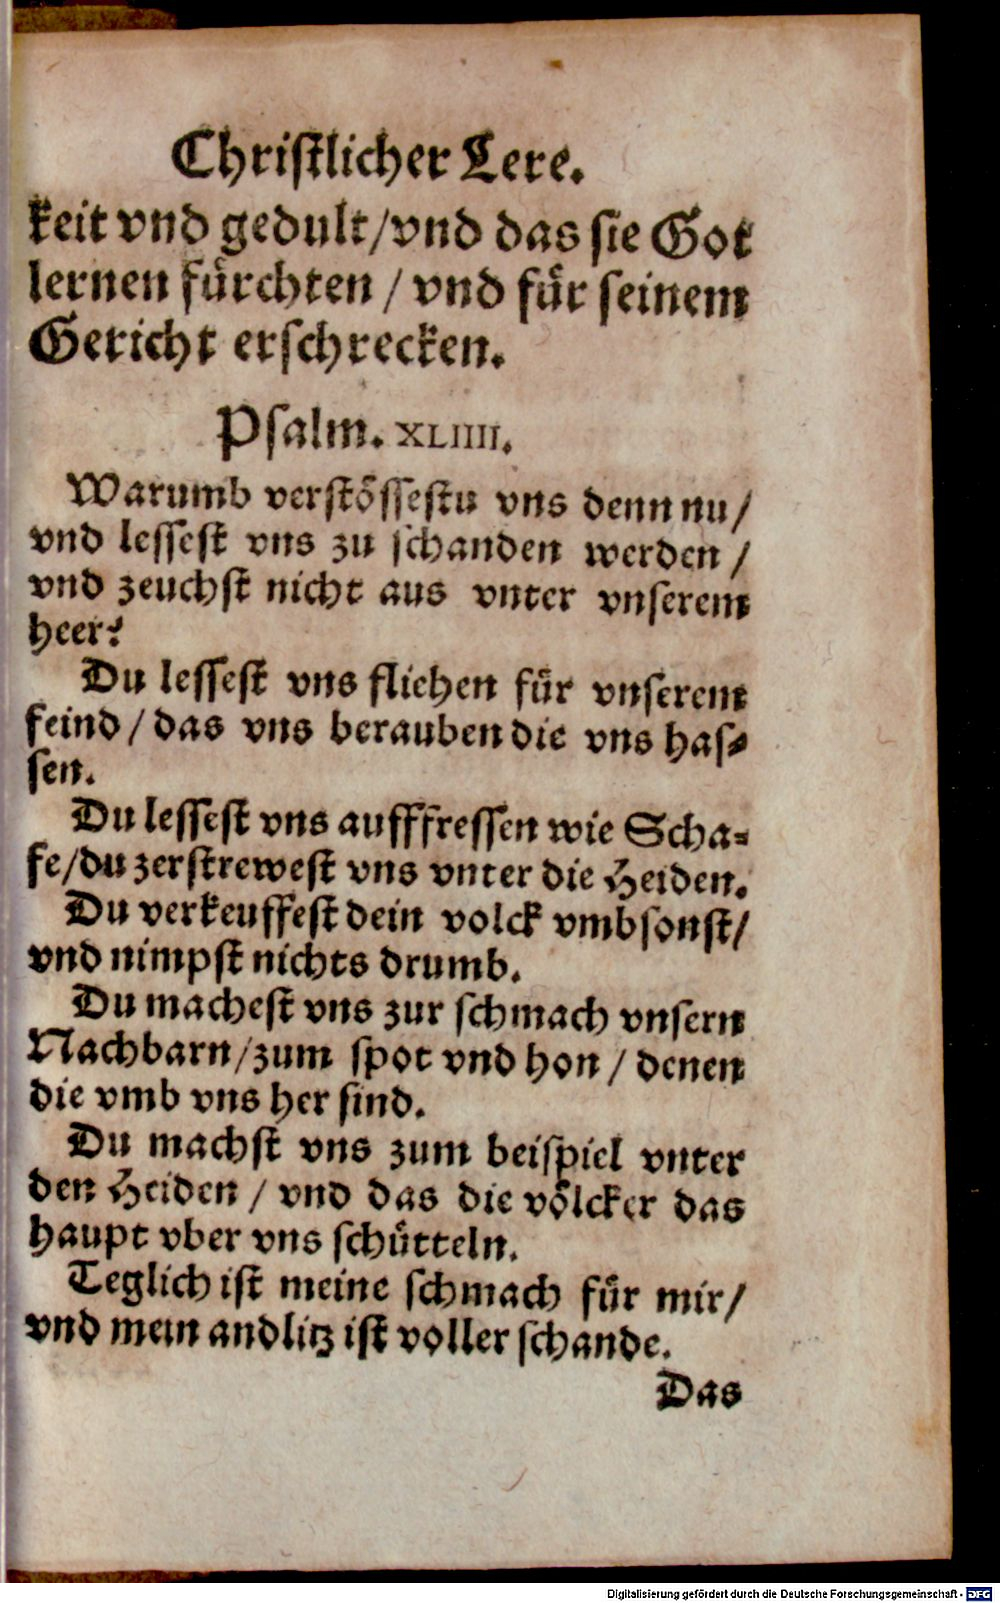 Christlicher Lere.
keit vnd gedult/vnd das sie Got
lernen fürchten / vnd für seinem
Gericht erschrecken.
Psalm. XLIIII.
Warumb verstössestu vns denn nu/
vnd lessest vns zu schanden werden /
vnd zeuchst nicht aus vnter vnserem
heer?
Du lessest vns fliehen für vnserem
feind / das vns berauben die vns has-
sen.
Du lessest vns aufffressen wie Scha-
fe/du zerstrewest vns vnter die Heiden.
Du verkeuffest dein volck vmbsonst/
vnd nimpst nichts drumb.
Du machest vns zur schmach vnsern
Nachbarn/zum spot vnd hon / denen
die vmb vns her sind.
Du machst vns zum beispiel vnter
den Heiden / vnd das die völcker das
haupt vber vns schütteln.
Teglich ist meine schmach für mir/
vnd mein andlitz ist voller schande.
Das
Digitalisierung gefördert durch die Deutsche Forschungsgemeinschaft - DFG